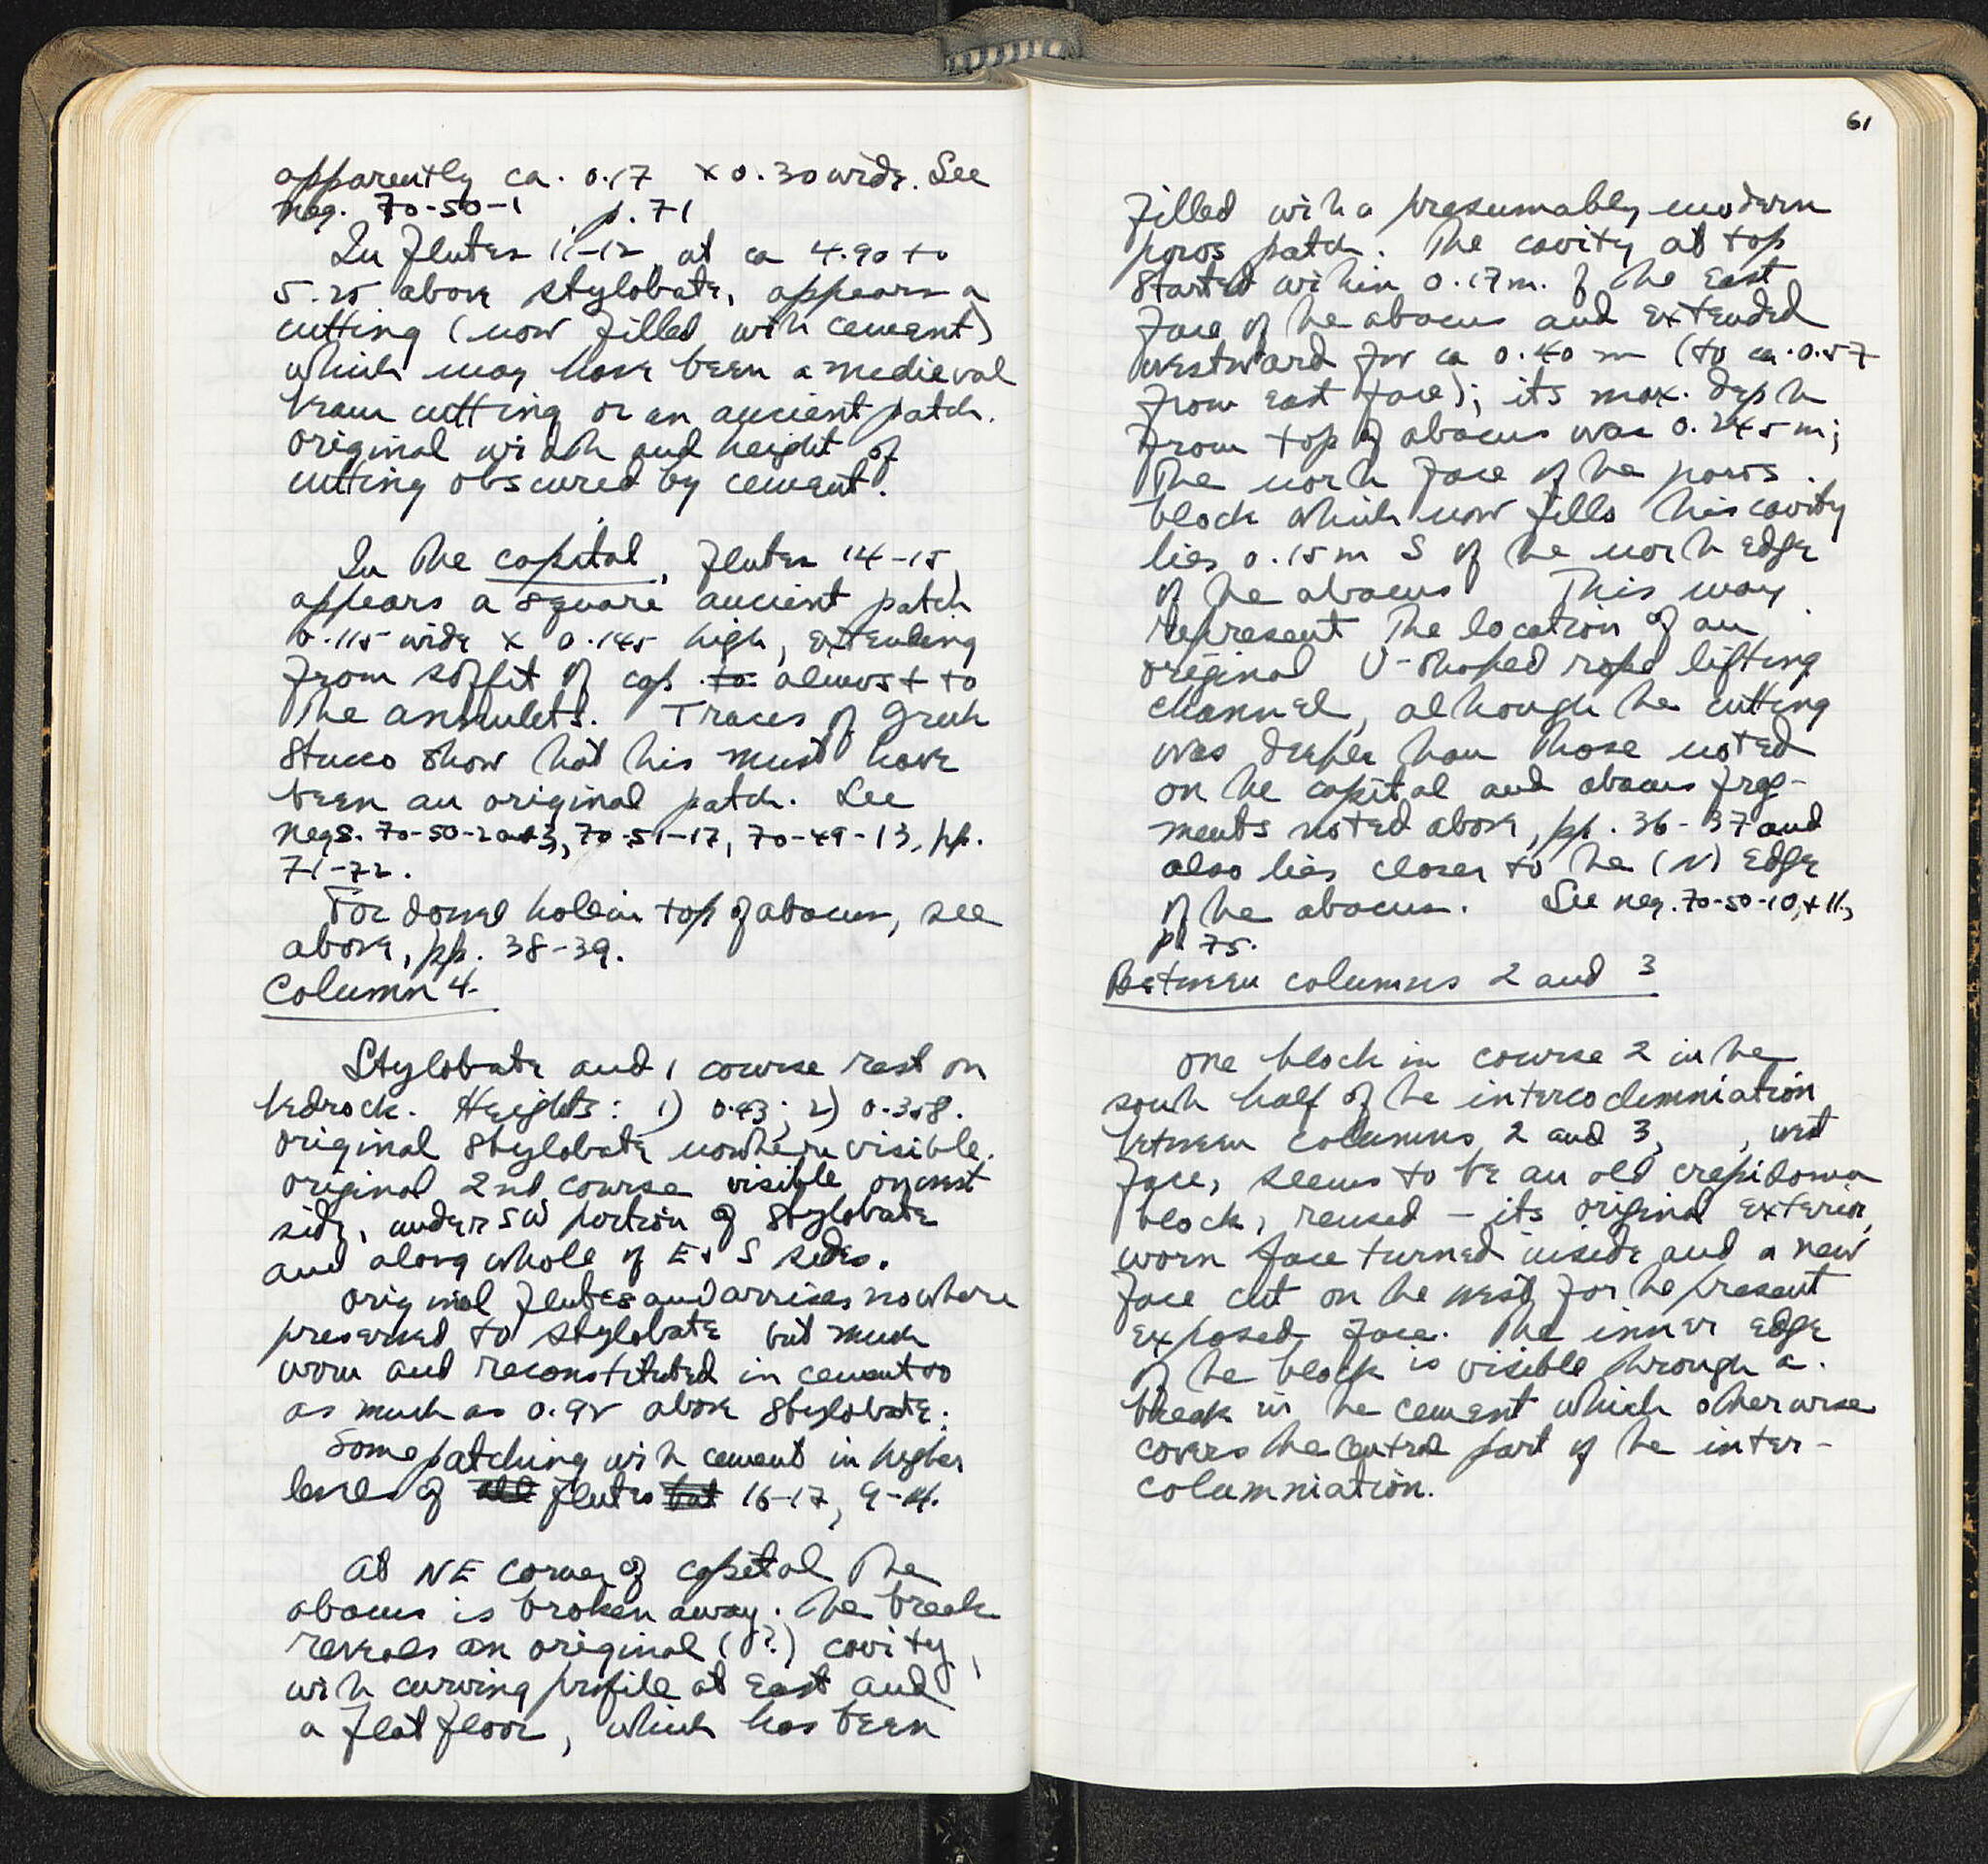 apparently ca. 0.17 x 0.30 wide. See
neg. 70-50-1, p. 71
In flutes 11-12, at ca 4.90 to
5.25 above stylobate, appears a
cutting (now filled with cement)
which may have been a medieval
beam cutting or an ancient patch.
Original width and height of
cutting obscured by cement.
In the capital, flutes 14-15,
appears a square ancient patch
0.115 wide x 0.145 high, extending
from soffit of cap. to almost to
the annulets. Traces of Greek
stucco show that this must have
been an original patch. See
negs. 70-50-2 and 3, 70-51-17, 70-49-13, pp.
71-72.
For dowel hole in top of abacus, see
above, pp. 38-39.
Column 4.
Stylobate and 1 course rest on
bedrock. Heights: 1) 0.43; 2) 0.358.
Original stylobate nowhere visible.
Original 2nd course visible on west
side, under SW portion of stylobate
and along whole of E & S sides.
Original flutes and arrises nowhere
preserved to stylobate but much
worn and reconstituted in cement to
as much as 0.92 above stylobate.
Some patching with cement in higher
levels of all flutes but 16-17, 9-14.
At NE corner of capital the
abacus is broken away. The break
reveals an original (?) cavity,
with curving profile at East and
a flat floor, which has been
61
filled with a presumably modern
poros patch. The cavity at top
started within 0.17 m. of the East
face of the abacus and extended
westward for ca 0.40 m (to ca. 0.57
from east face); its max. depth
from top of abacus was 0.245 m;
The north face of the poros
block which now fills this cavity
lies 0.15 m S of the north edge
of the abacus. This may
represent the location of an
original U-shaped rope lifting
channel, although the cutting
was deeper than those noted
on the capital and abacus frag-
ments noted above, pp. 36-37 and
also lies closer to the (N) edge
of the abacus. See neg. 70-50-10, + 11,
p. 75.
Between columns 2 and 3
One block in course 2 in the
south half of the intercolumniation
between columns 2 and 3, , west
face, seems to be an old crepidoma
block, reused – its original exterior,
worn face turned inside and a new
face cut on the west for the present
exposed face. The inner edge
of the block is visible through a
break in the cement which otherwise
covers the central part of the inter-
columniation.